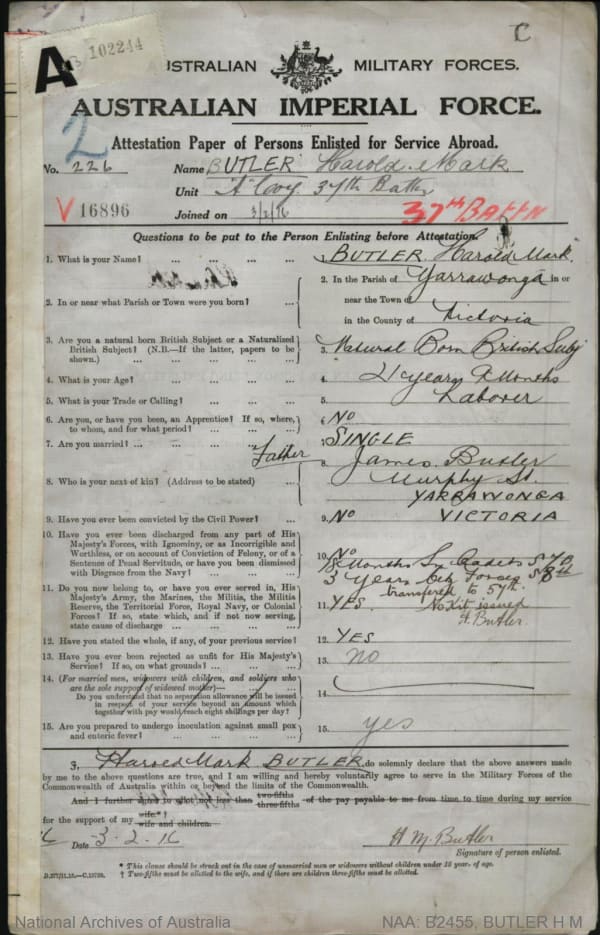 A
102244
C
AUSTRALIAN MILITARY FORCES.
AUSTRALIAN IMPERIAL FORCE.
2
Attestation Paper of Persons Enlisted for Service Abroad.
No. 226 Name BUTLER Harold Mark
Unit "A" Coy. 37th Battn
V 16896 Joined on 3/2/16 37TH BATTN
Questions to be put to the Person Enlisting before Attestation.
1. What is your Name? ... ... ... ... 1. BUTLER. Harold Mark.
2. In or near what Parish or Town were you born? ... 2. In the Parish of Yarrawonga in or
near the Town of
in the County of Victoria
3. Are you a natural born British Subject or a Naturalized
British Subject? (N.B.—If the latter, papers to be
shown.) ... ... ... ... ... 3. Natural Born British Subj
4. What is your Age? ... ... ... ... 4. 21 years 9 Months
5. What is your Trade or Calling? ... ... ... 5. Laborer
6. Are you, or have you been, an Apprentice? If so, where,
to whom, and for what period? ... ... ... 6. NO
7. Are you married? ... ... ... ... 7. SINGLE
Father
8. Who is your next of kin? (Address to be stated) ... 8. James Butler
Murphy St.
YARRAWONGA
VICTORIA
9. Have you ever been convicted by the Civil Power? ... 9. No
10. Have you ever been discharged from any part of His
Majesty's Forces, with Ignominy, or as Incorrigible and
Worthless, or on account of Conviction of Felony, or of a
Sentence of Penal Servitude, or have you been dismissed
with Disgrace from the Navy? ... ... ... 10. No
11. Do you now belong to, or have you ever served in, His
Majesty's Army, the Marines, the Militia, the Militia
Reserve, the Territorial Force, Royal Navy, or Colonial
Forces? If so, state which, and if not now serving,
state cause of discharge ... ... ... ... 11. YES.
18 Months Sn Cadets
3 Years Ctz Forces
transferred to 57th.
No Kit issued
H. Butler.
12. Have you stated the whole, if any, of your previous service? 12. YES
13. Have you ever been rejected as unfit for His Majesty's
Service? If so, on what grounds? ... ... ... 13. NO
14. (For married men, widowers with children, and soldiers who
are the sole support of widowed mother)—
Do you understand that no separation allowance will be issued
in respect of your service beyond an amount which
together with pay would reach eight shillings per day? ... 14.
15. Are you prepared to undergo inoculation against small pox
and enteric fever? ... ... ... ... 15. yes
I, Harold Mark BUTLER, do solemnly declare that the above answers made
by me to the above questions are true, and I am willing and hereby voluntarily agree to serve in the Military Forces of the
Commonwealth of Australia within or beyond the limits of the Commonwealth.
And I further agree to allot not less than two-fifths three-fifths of the pay payable to me from time to time during my service
for the support of my wife.* † wife and children.
Date 3-2-16 H M. Butler
Signature of person enlisted.
* This clause should be struck out in the case of unmarried men or widowers without children under 18 years of age.
† Two-fifths must be allotted to the wife, and if there are children three-fifths must be allotted.
National Archives of Australia NAA: B2455, BUTLER H M